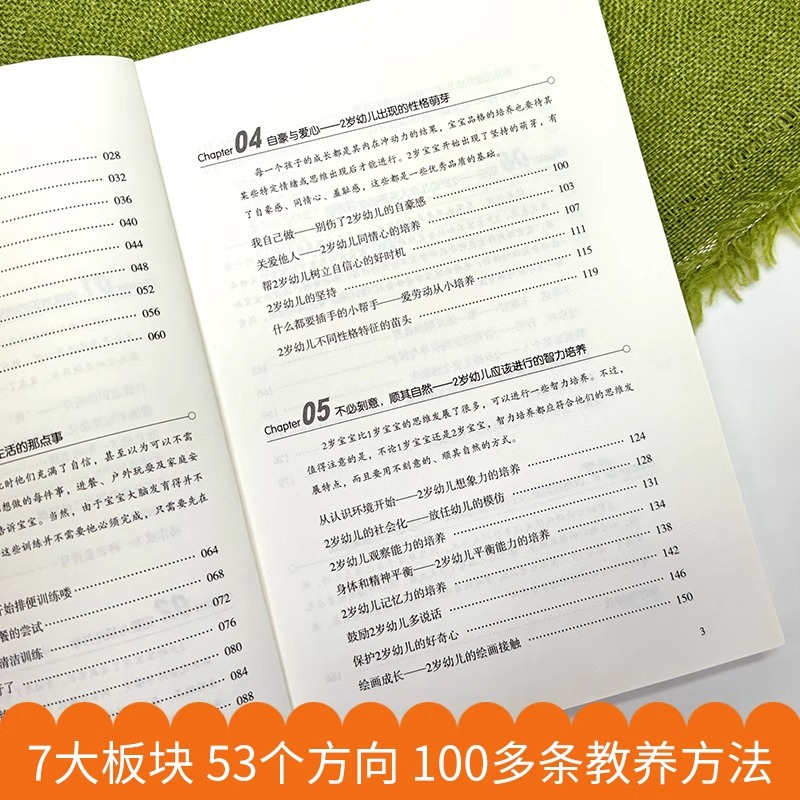 028
032
036
040
044
048
052
056
060
生活的那点事
此时他们充满了自信，甚至以为可以不需
想做的每件事，进餐、户外玩耍及家庭安
告诉宝宝。当然，由于宝宝大脑发育得并不
这些训练并不需要他必须完成，只需要先在
064
开始排便训练喽 068
餐的尝试 072
清洁训练 076
行了 080
084
088
Chapter 04 自豪与爱心——2岁幼儿出现的性格萌芽
每一个孩子的成长都是其内在冲动力的结果，宝宝品格的培养也要待其
某些特定情绪或思维出现后才能进行。2岁宝宝开始出现了坚持的萌芽，有
了自豪感、同情心、羞耻感，这些都是一些优秀品质的基础。
我自己做——别伤了2岁幼儿的自豪感 100
关爱他人——2岁幼儿同情心的培养 103
帮2岁幼儿树立自信心的好时机 107
2岁幼儿的坚持 111
什么都要插手的小帮手——爱劳动从小培养 115
2岁幼儿不同性格特征的苗头 119
Chapter 05 不必刻意，顺其自然——2岁幼儿应该进行的智力培养
2岁宝宝比1岁宝宝的思维发展了很多，可以进行一些智力培养。不过，
值得注意的是，不论1岁宝宝还是2岁宝宝，智力培养都应符合他们的思维发
展特点，而且要用不刻意的、顺其自然的方式。
从认识环境开始——2岁幼儿想象力的培养 124
2岁幼儿的社会化——放任幼儿的模仿 128
2岁幼儿观察能力的培养 131
身体和精神平衡——2岁幼儿平衡能力的培养 134
2岁幼儿记忆力的培养 138
鼓励2岁幼儿多说话 142
保护2岁幼儿的好奇心 146
绘画成长——2岁幼儿的绘画接触 150
3
7大板块 53个方向 100多条教养方法